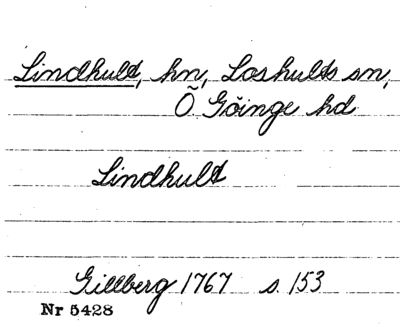 Lindhult, hn, Loshults sn,
Ö. Göinge hd
Lindhult
Gillberg 1767 s. 153
Nr 5428